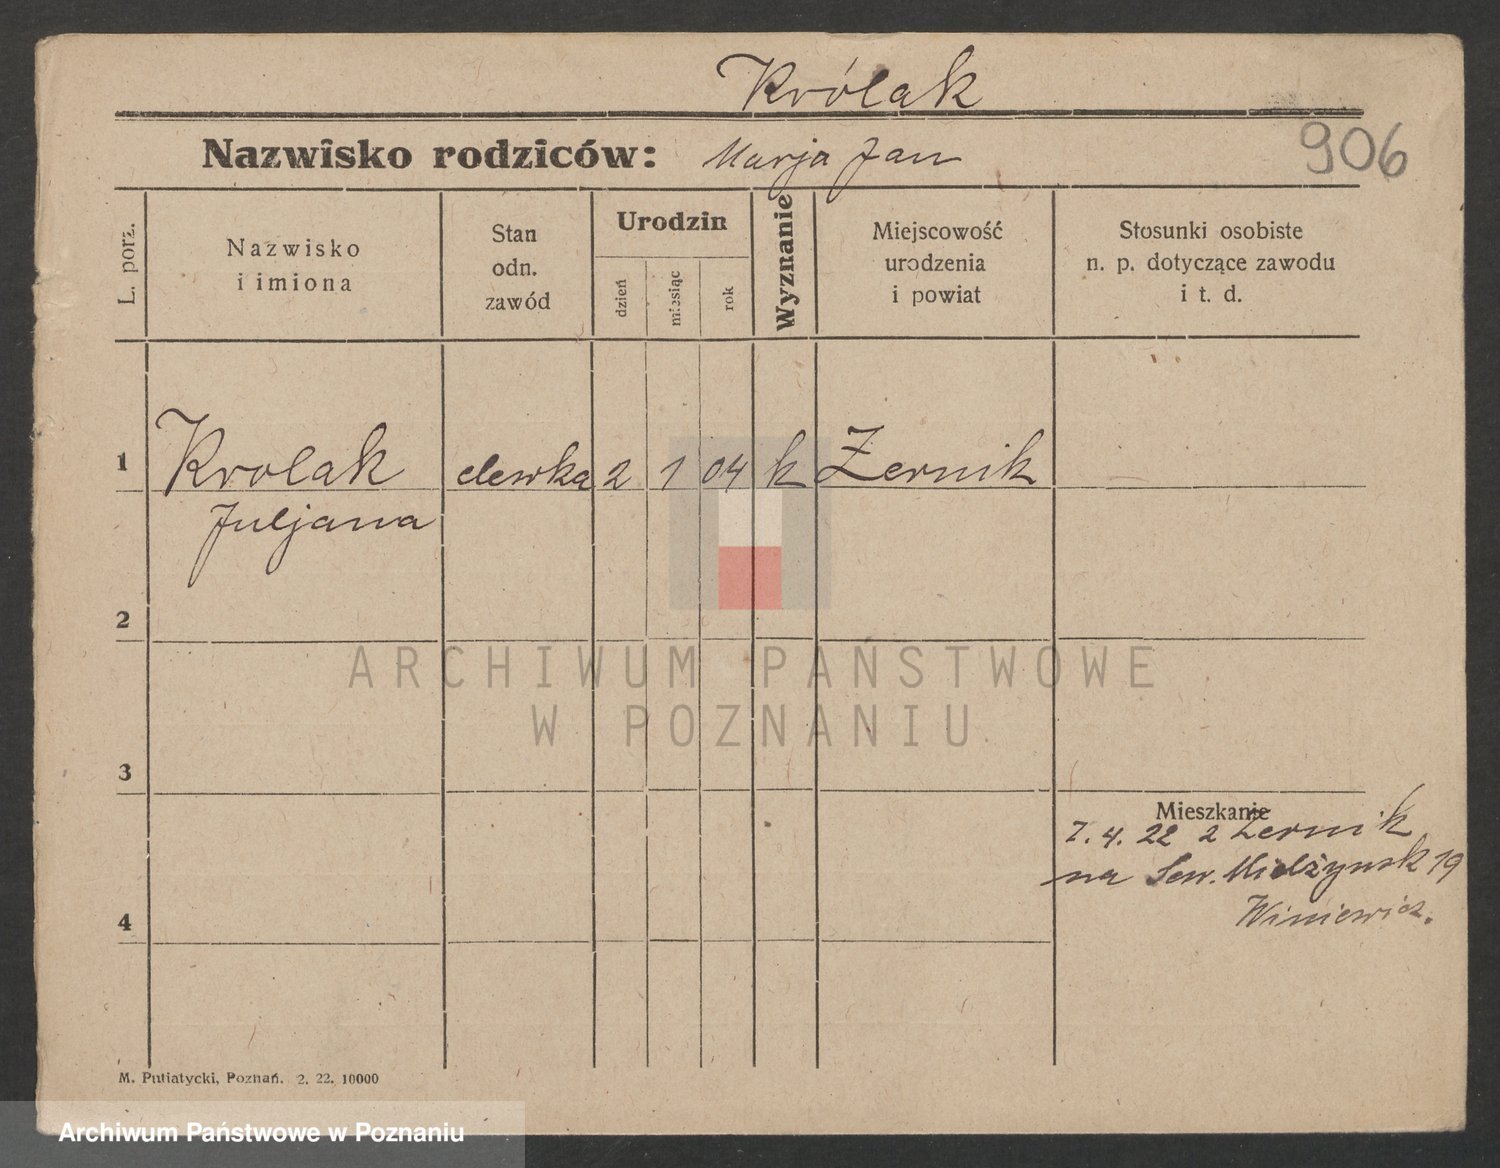 Królak
Nazwisko rodziców: Marja Jan
906
L. porz.
Nazwisko
i imiona
Stan
odn.
zawód
Urodzin
dzień
miesiąc
rok
Wyznanie
Miejscowość
urodzenia
i powiat
Stosunki osobiste
n. p. dotyczące zawodu
i t. d.
1 Krolak 2 1 04 k Żernik
Juljana
2
ARCHIWUM PAŃSTWOWE
W POZNANIU
3
Mieszkanie
7. 4. 22 z Żernik
na 19
Winiewicz.
4
M. Putiatycki, Poznań. 2. 22. 10000
Archiwum Państwowe w Poznaniu